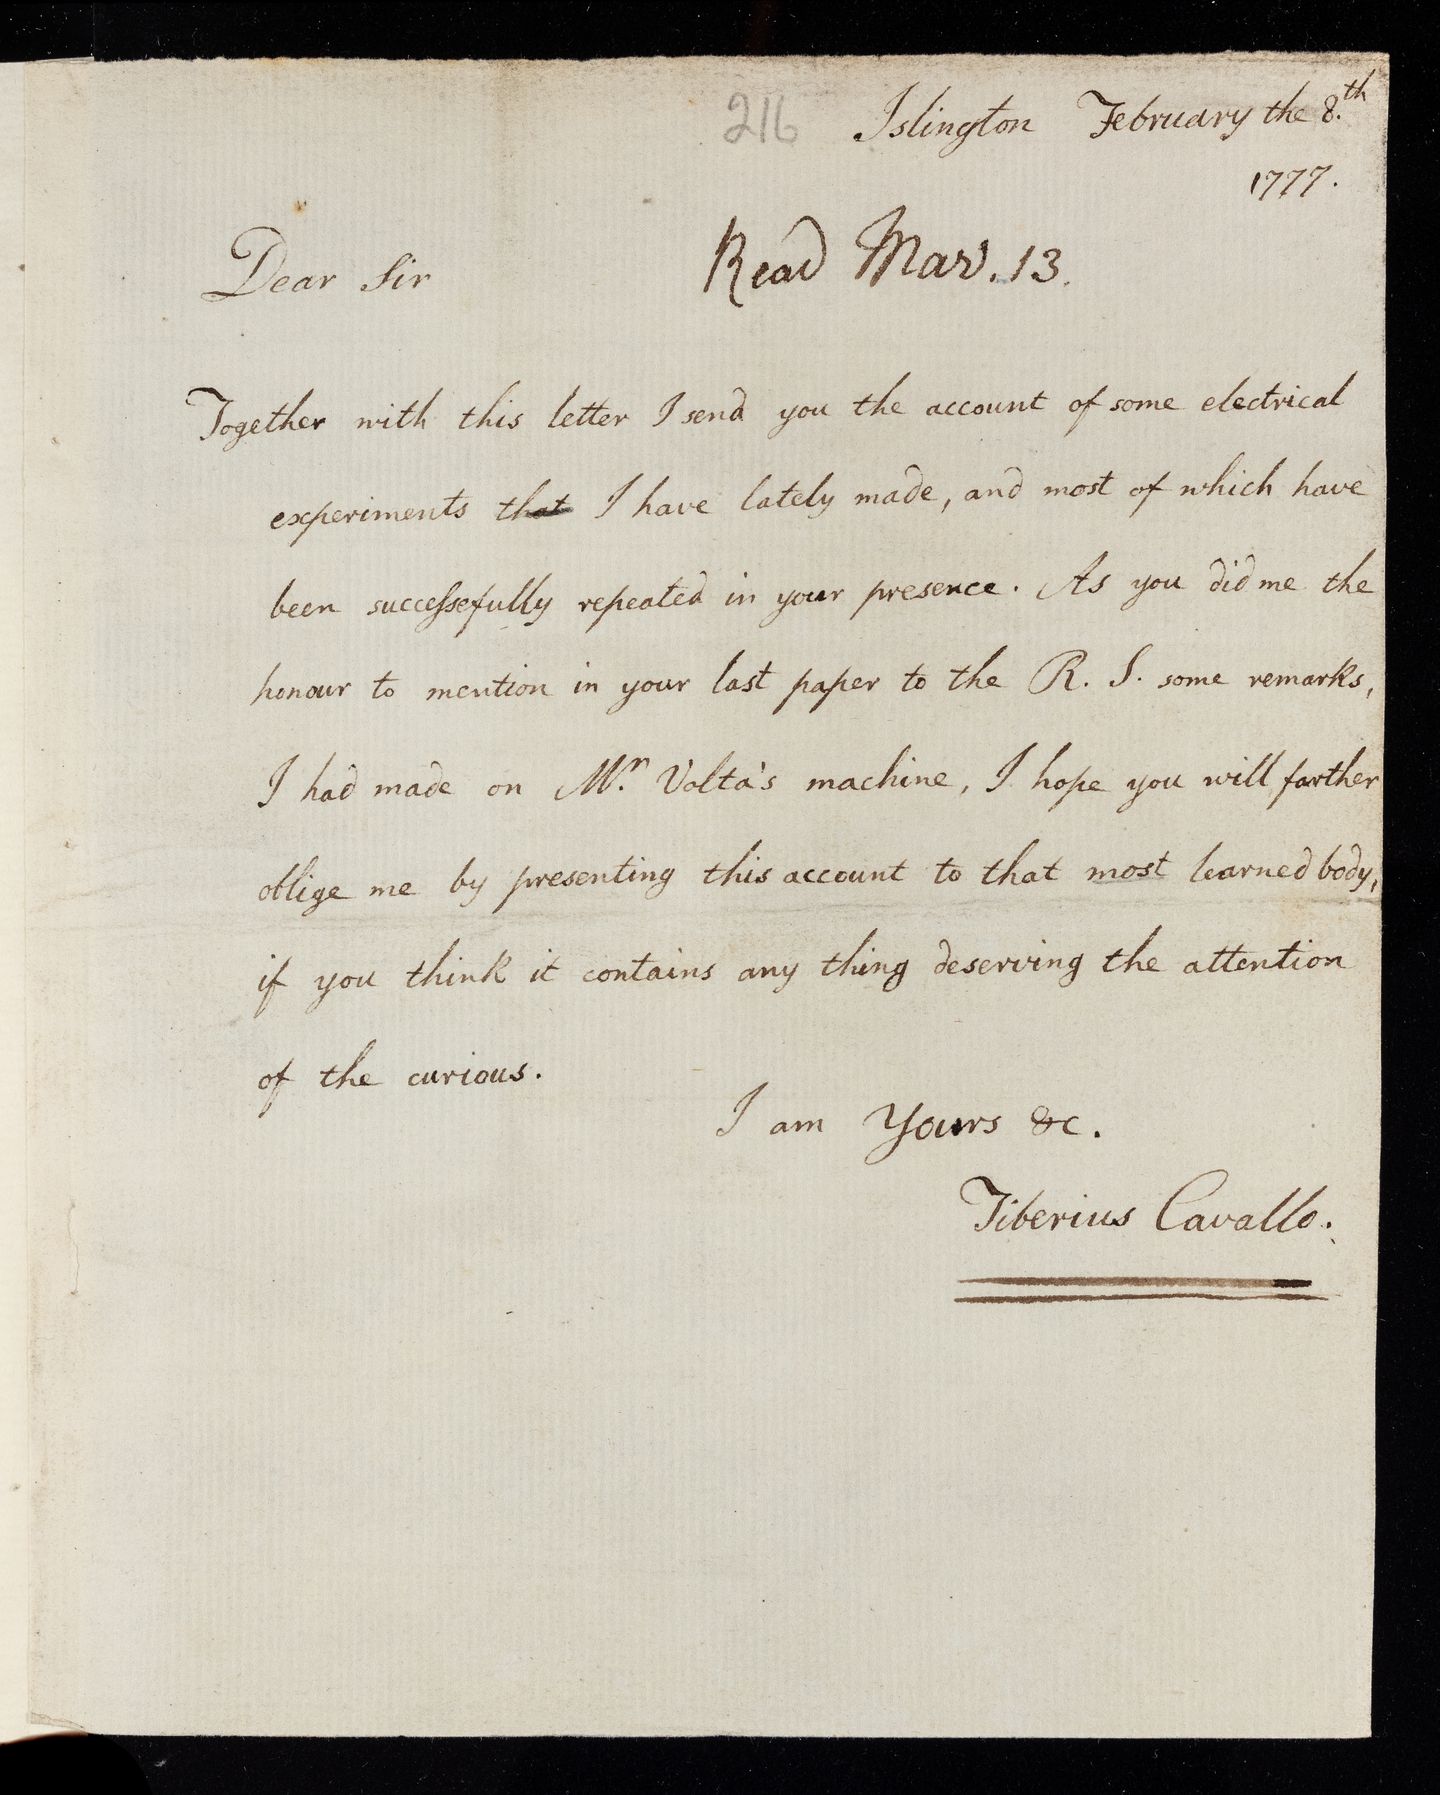 216
Islington February the 8.th
1777.
Read Mar. 13.
Dear Sir
Together with this letter I send you the account of some electrical
experiments that I have lately made, and most of which have
been successefully repeated in your presence. As you did me the
honour to mention in your last paper to the R. S. some remarks,
I had made on Mr. Volta's machine, I hope you will farther
oblige me by presenting this account to that most learned body,
if you think it contains any thing deserving the attention
of the curious.
I am Yours &c.
Tiberius Cavallo.